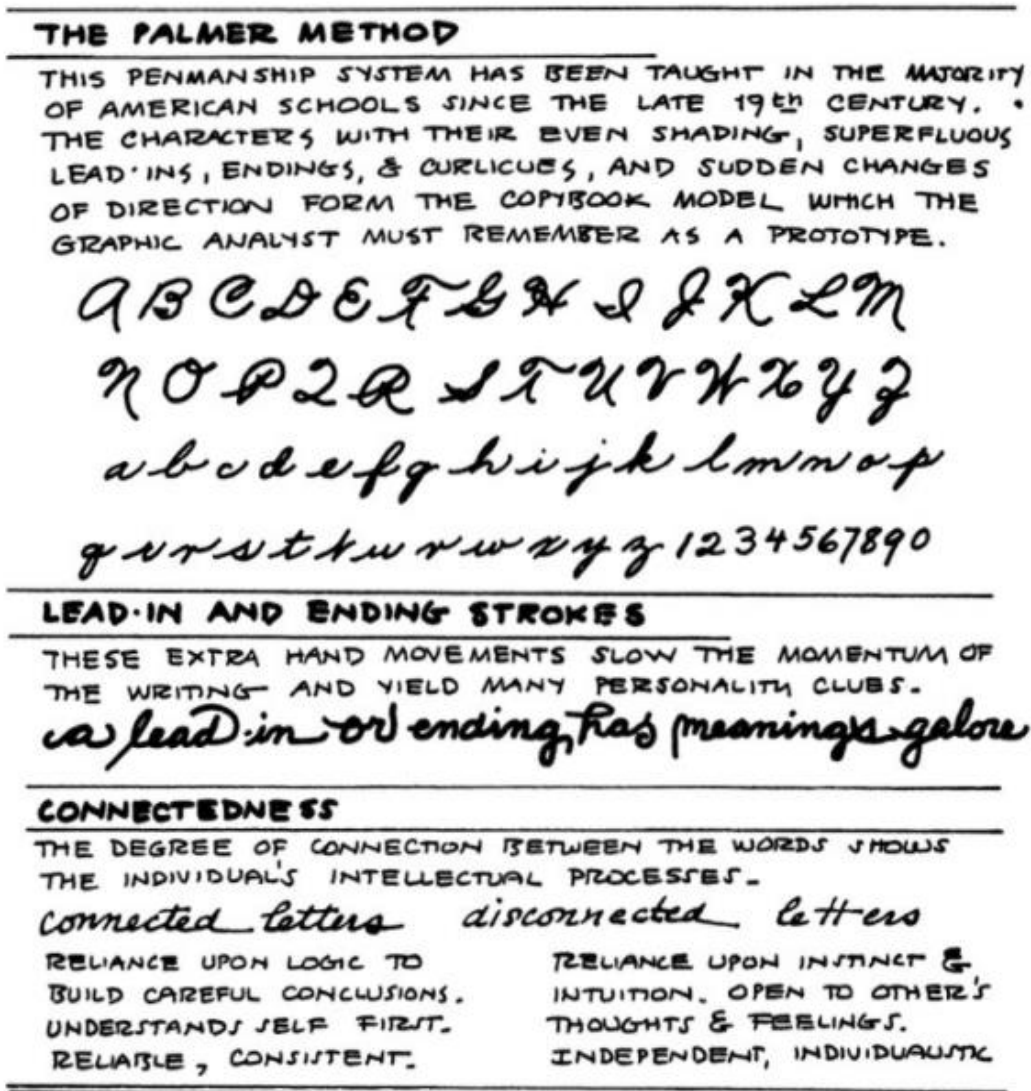 THE PALMER METHOD
THIS PENMANSHIP SYSTEM HAS BEEN TAUGHT IN THE MAJORITY
OF AMERICAN SCHOOLS SINCE THE LATE 19th CENTURY.
THE CHARACTERS WITH THEIR EVEN SHADING, SUPERFLUOUS
LEAD·INS, ENDINGS, & CURLICUES, AND SUDDEN CHANGES
OF DIRECTION FORM THE COPYBOOK MODEL WHICH THE
GRAPHIC ANALYST MUST REMEMBER AS A PROTOTYPE.
A B C D E F G H I J K L M
N O P Q R S T U V W X Y Z
a b c d e f g h i j k l m n o p
q r r s t t u v w x y z 1 2 3 4 5 6 7 8 9 0
LEAD·IN AND ENDING STROKES
THESE EXTRA HAND MOVEMENTS SLOW THE MOMENTUM OF
THE WRITING AND YIELD MANY PERSONALITY CLUES.
a lead·in or ending has meanings galore
CONNECTEDNESS
THE DEGREE OF CONNECTION BETWEEN THE WORDS SHOWS
THE INDIVIDUAL'S INTELLECTUAL PROCESSES.
connected letters disconnected letters
RELIANCE UPON LOGIC TO
BUILD CAREFUL CONCLUSIONS.
UNDERSTANDS SELF FIRST.
RELIABLE, CONSISTENT.
RELIANCE UPON INSTINCT &
INTUITION. OPEN TO OTHER'S
THOUGHTS & FEELINGS.
INDEPENDENT, INDIVIDUALISTIC